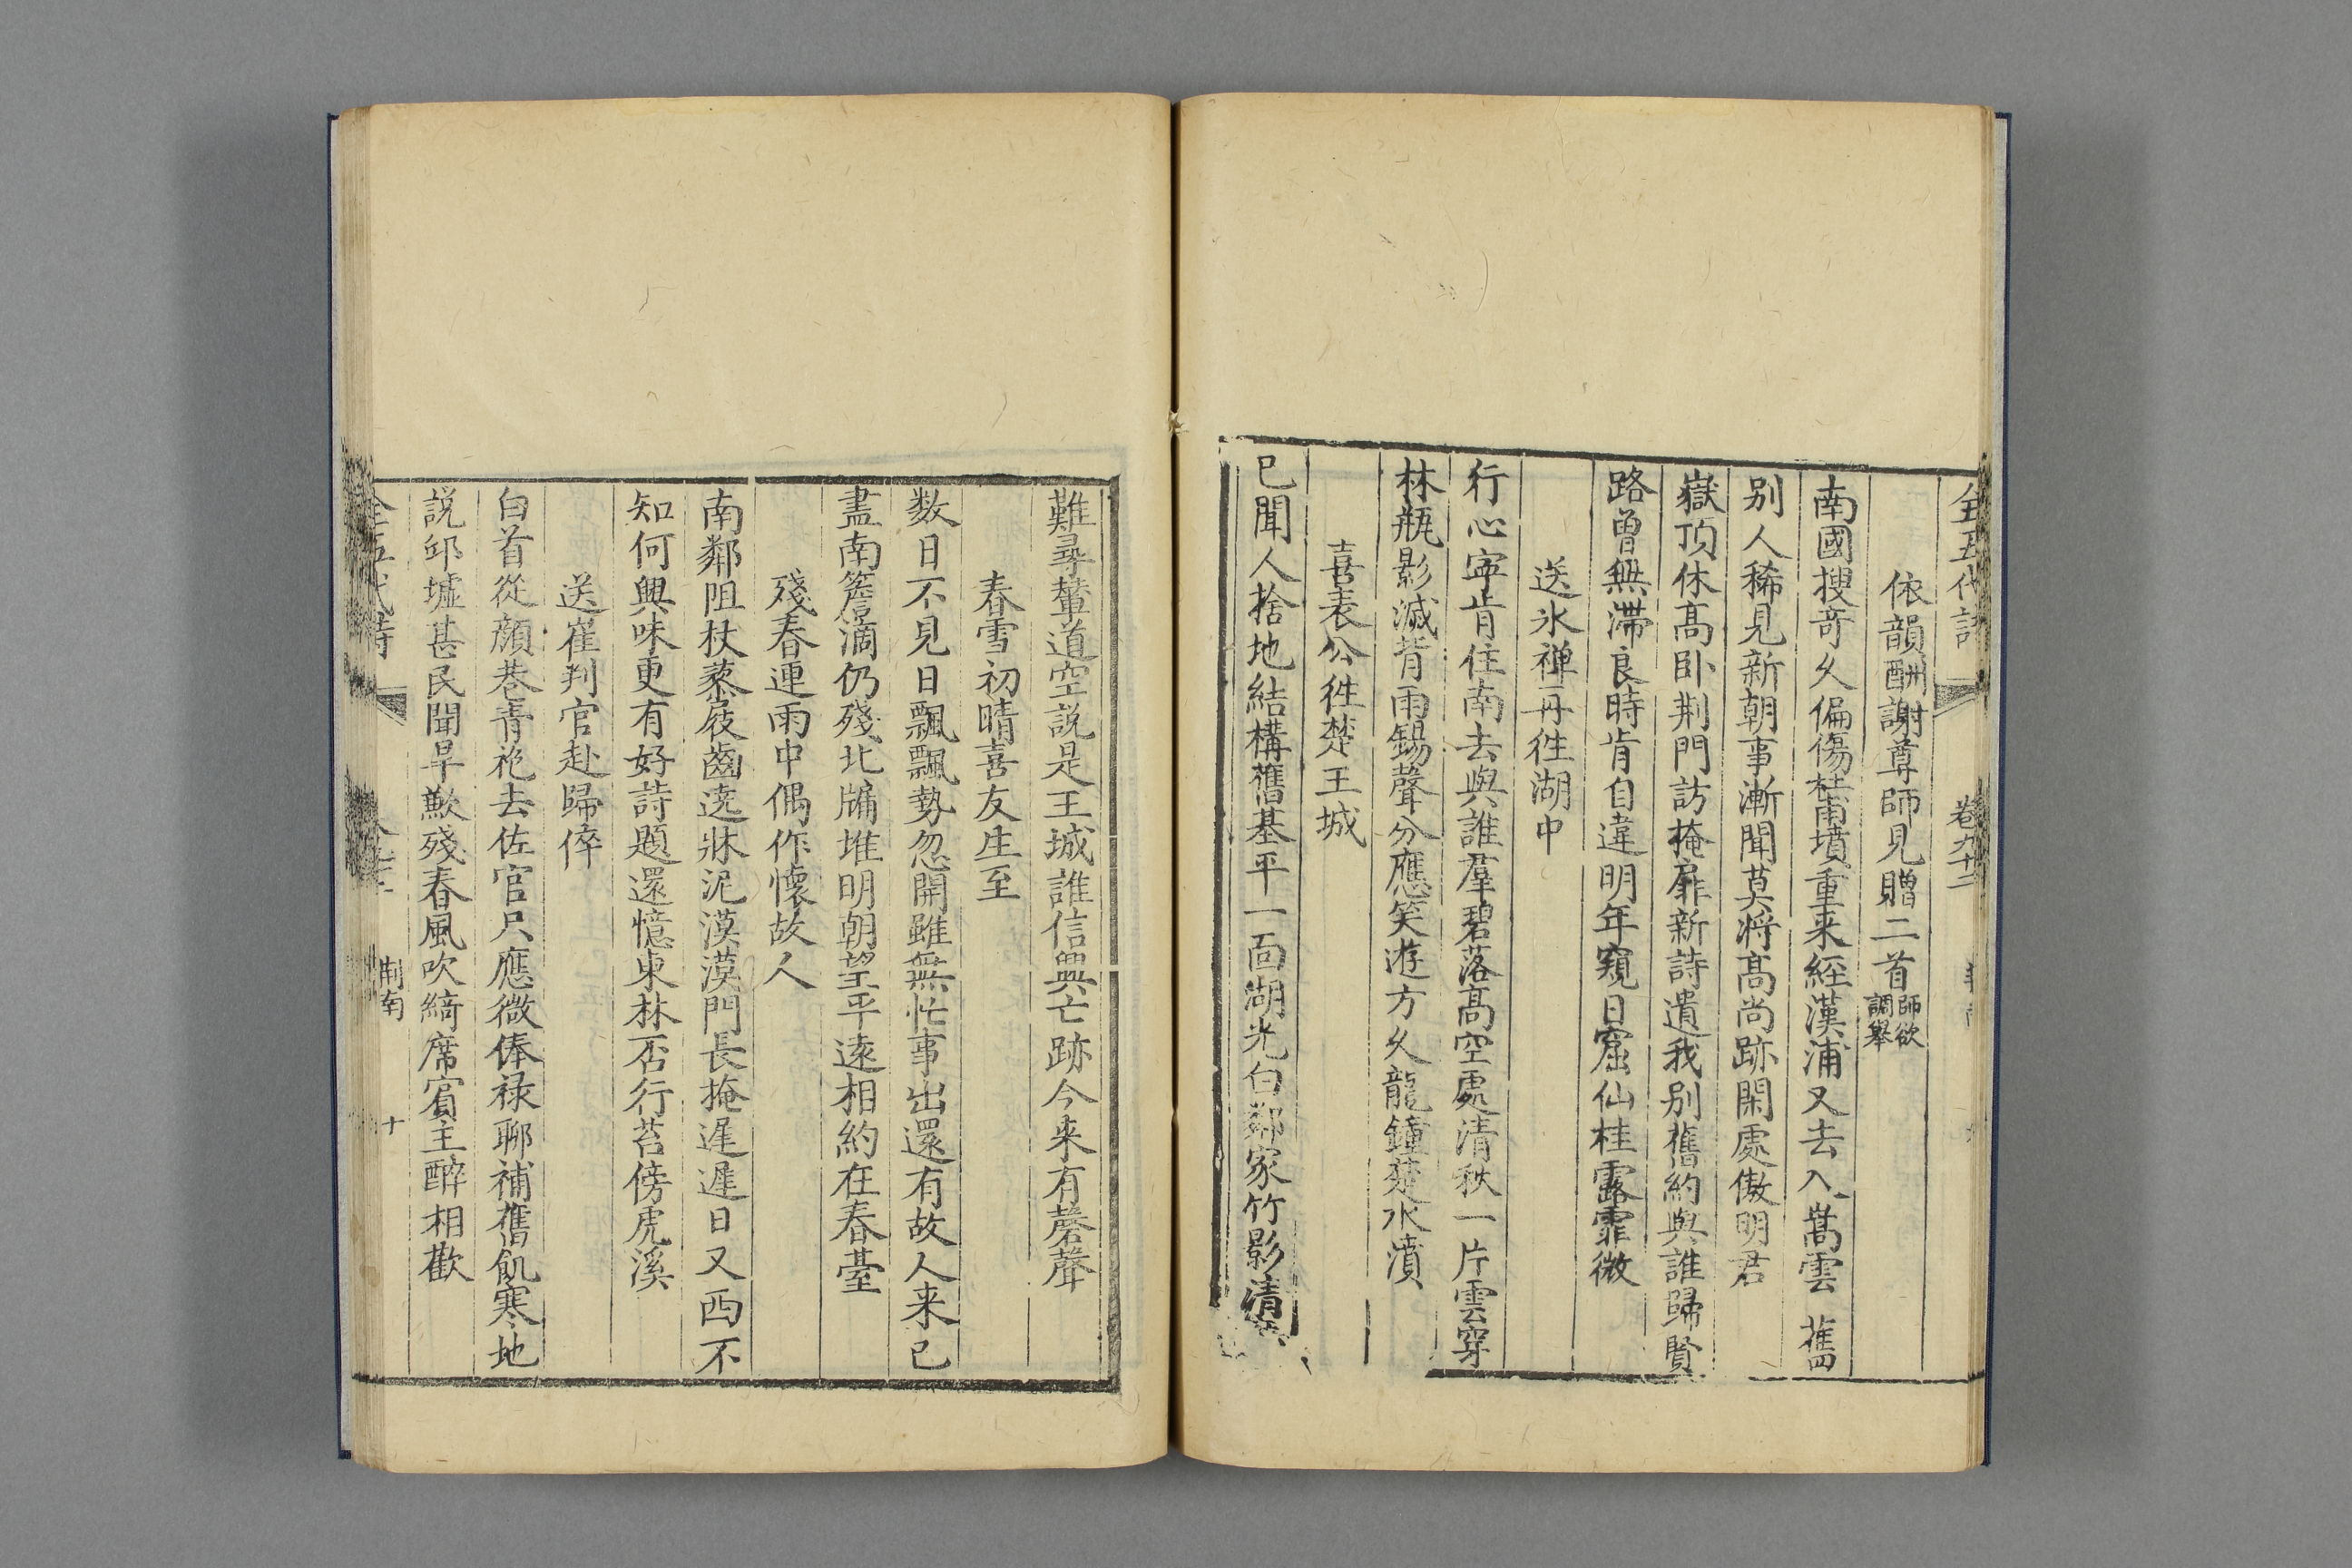 全五代詩 卷九十二
依韻酬謝尊師見贈二首師欲調舉
南國搜奇久偏傷杜甫墳重来經漢浦又去入嵩雲 舊
别人稀見新朝事漸聞莫將高尚跡閑處傲明君
嶽頂休高卧荆門訪掩扉新詩遺我别舊約與誰歸賢
路曾無滯良時肯自違明年窺日窟仙桂露霏微
送氷禅再徃湖中
行心寧肯住南去與誰羣碧落高空處清秋一片雲穿
林瓶影滅背雨錫聲分應笑遊方久龍鐘楚水濆
喜表公徃楚王城
已聞人捨地結構舊基平一面湖光白鄰家竹影清
難尋輦道空説是王城誰信興亡跡今来有磬聲
春雪初晴喜友生至
数日不見日飄飄勢忽開雖無忙事出還有故人来已
盡南簷滴仍殘北牖堆明朝望平遠相約在春臺
殘春連雨中偶作懷故人
南鄰阻杖藜屐齒遶牀泥漠漠門長掩遲遲日又西不
知何興味更有好詩題還憶東林否行苔傍虎溪
送崔判官赴歸倅
白首從顔巷青袍去佐官只應微俸禄聊補舊飢寒地
説邱墟甚民聞旱歉殘春風吹綺席賓主醉相歡
全五代詩 荆南 十